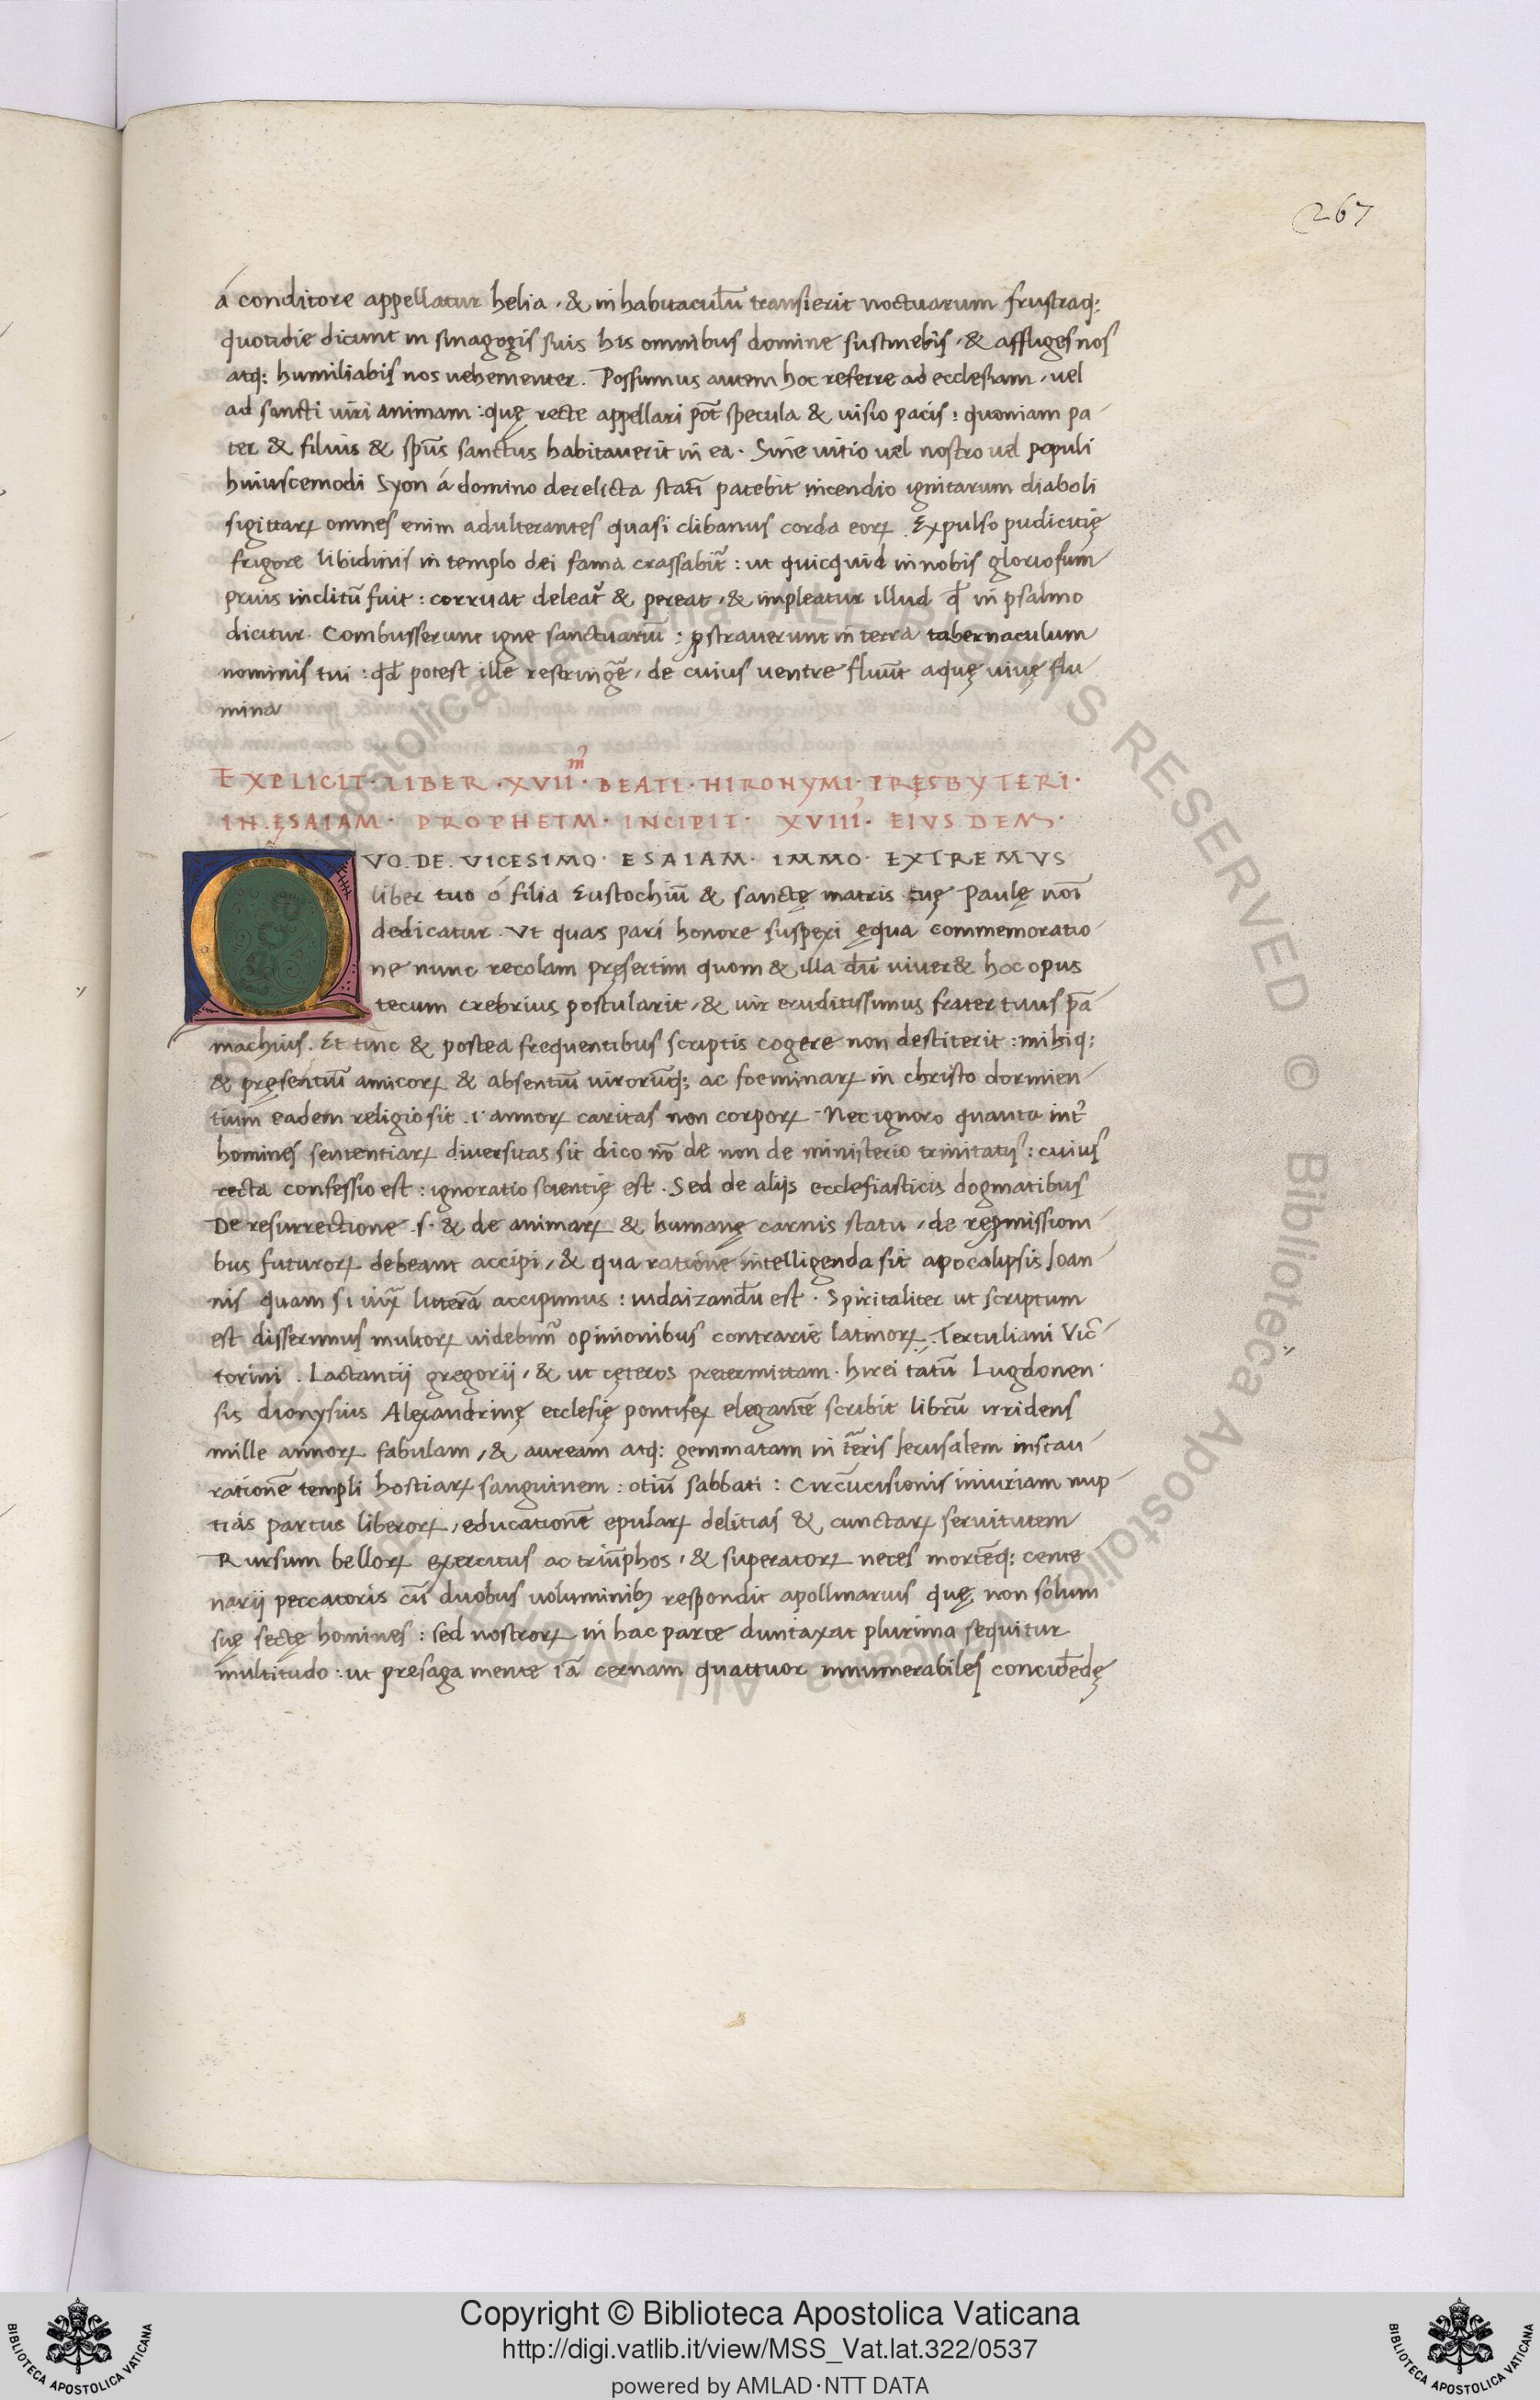 267
á conditore appellatur helia, & in habitacul̄u transierit noctuarum frustraq;
quotidie dicunt in sinagogis suis his omnibus domine sustinebis, & affliges nos
atq; humiliabis nos vehementer. Possumus autem hoc referre ad ecclesiam, vel
ad sancti viri animam : quę recte appellari pōt specula & visio pacis : quoniam pa-
ter & filius & sp̄us sanctus habitaverit in ea. Sine vitio vel nostro vel populi
huiuscemodi Syon á domino derelicta statī patebit incendio ignitarum diaboli
sigittaꝝ omnes enim adulterantes quasi clibanus corda eoꝝ. Expulso pudicitię
frigore libidinis in templo dei fama crassabit̄ : ut quicquid in nobis gloriosum
prius inclitū fuit : corruat deleat̄ & pereat, & impleatur illud qđ in psalmo
dicitur. Combusserunt igne sanctuariū : ꝓstraverunt in terra tabernaculum
nominis tui : qđ potest ille restring̃e, de cuius ventre fluūt aquę vivę flu-
mina
EXPLICIT · LIBER · XVIIm · BEATI · HIRONYMI · PRĘSBYTERI ·
IN · ĘSAIAM · PROPHETM · INCIPIT · XVIII · EIUSDEM ·
QVO · DE · VICESIMO · ESAIAM · IMMO · EXTREMVS
liber tuo ó filia Eustochiū & sanctę matris tuę Paulę noī
dedicatur. Ut quas pari honore suspexi ęqua commemoratio-
ne nunc recolam pręsertim quom & illa dū viver& hoc opus
tecum crebrius postularit, & vir eruditissimus frater tuus pā
machius. Et tinc & postea frequentibus scriptis cogere non destiterit : mihiq;
& pręsentiū amicoꝝ & absentiū virorūq; ac foeminaꝝ in christo dormien-
tium eadem religio sit .i. annoꝝ caritas non corpoꝝ. Nec ignoro quanta int̄
homines sententiaꝝ diversitas sit dico nō de non de ministerio trinitatis : cuius
recta confessio est : ignoratio scientię est. Sed de aliis ecclesiasticis dogmatibus
De resurrectione .s. & de animaꝝ & humanę carnis statu, de reꝓmission-
bus futuroꝝ debeant accipi, & qua ratione intelligenda sit apocalipsis Joan-
nis quam si iuxͣ litterā accipimus : iudaizandū est. Spiritaliter ut scriptum
est disserimus multoꝝ videbim̄ opinionibus contrarie latinoꝝ. Tertuliani Vic-
torini. Lactantij gregorij, & ut cęteros pretermittam. hirei tatū Lugdonen-
sis dionysius Alexandrinę ecclesię pontifex elegantē scribit librū irridens
mille annoꝝ fabulam, & auream atq; gemmatam in tēris Ierusalem instau-
rationē templi hostiaꝝ sanguinem : otiū sabbati : Circūcisionis iniuriam nup-
tias partus liberoꝝ, educationē epulaꝝ delitias & cunctaꝝ servitutem
Rursum belloꝝ exercitus ac triūphos, & superatoꝝ neces mortēq; cente-
narij peccatoris cū duobus voluminibꝫ respondit apollinarius quę non solum
suę sectę homines : sed nostroꝝ in hac parte duntaxat plurima sequitur
multitudo : ut presaga mente iā cernam quattuor innumerabiles concidēdę
Copyright © Biblioteca Apostolica Vaticana
http://digi.vatlib.it/view/MSS_Vat.lat.322/0537
powered by AMLAD·NTT DATA